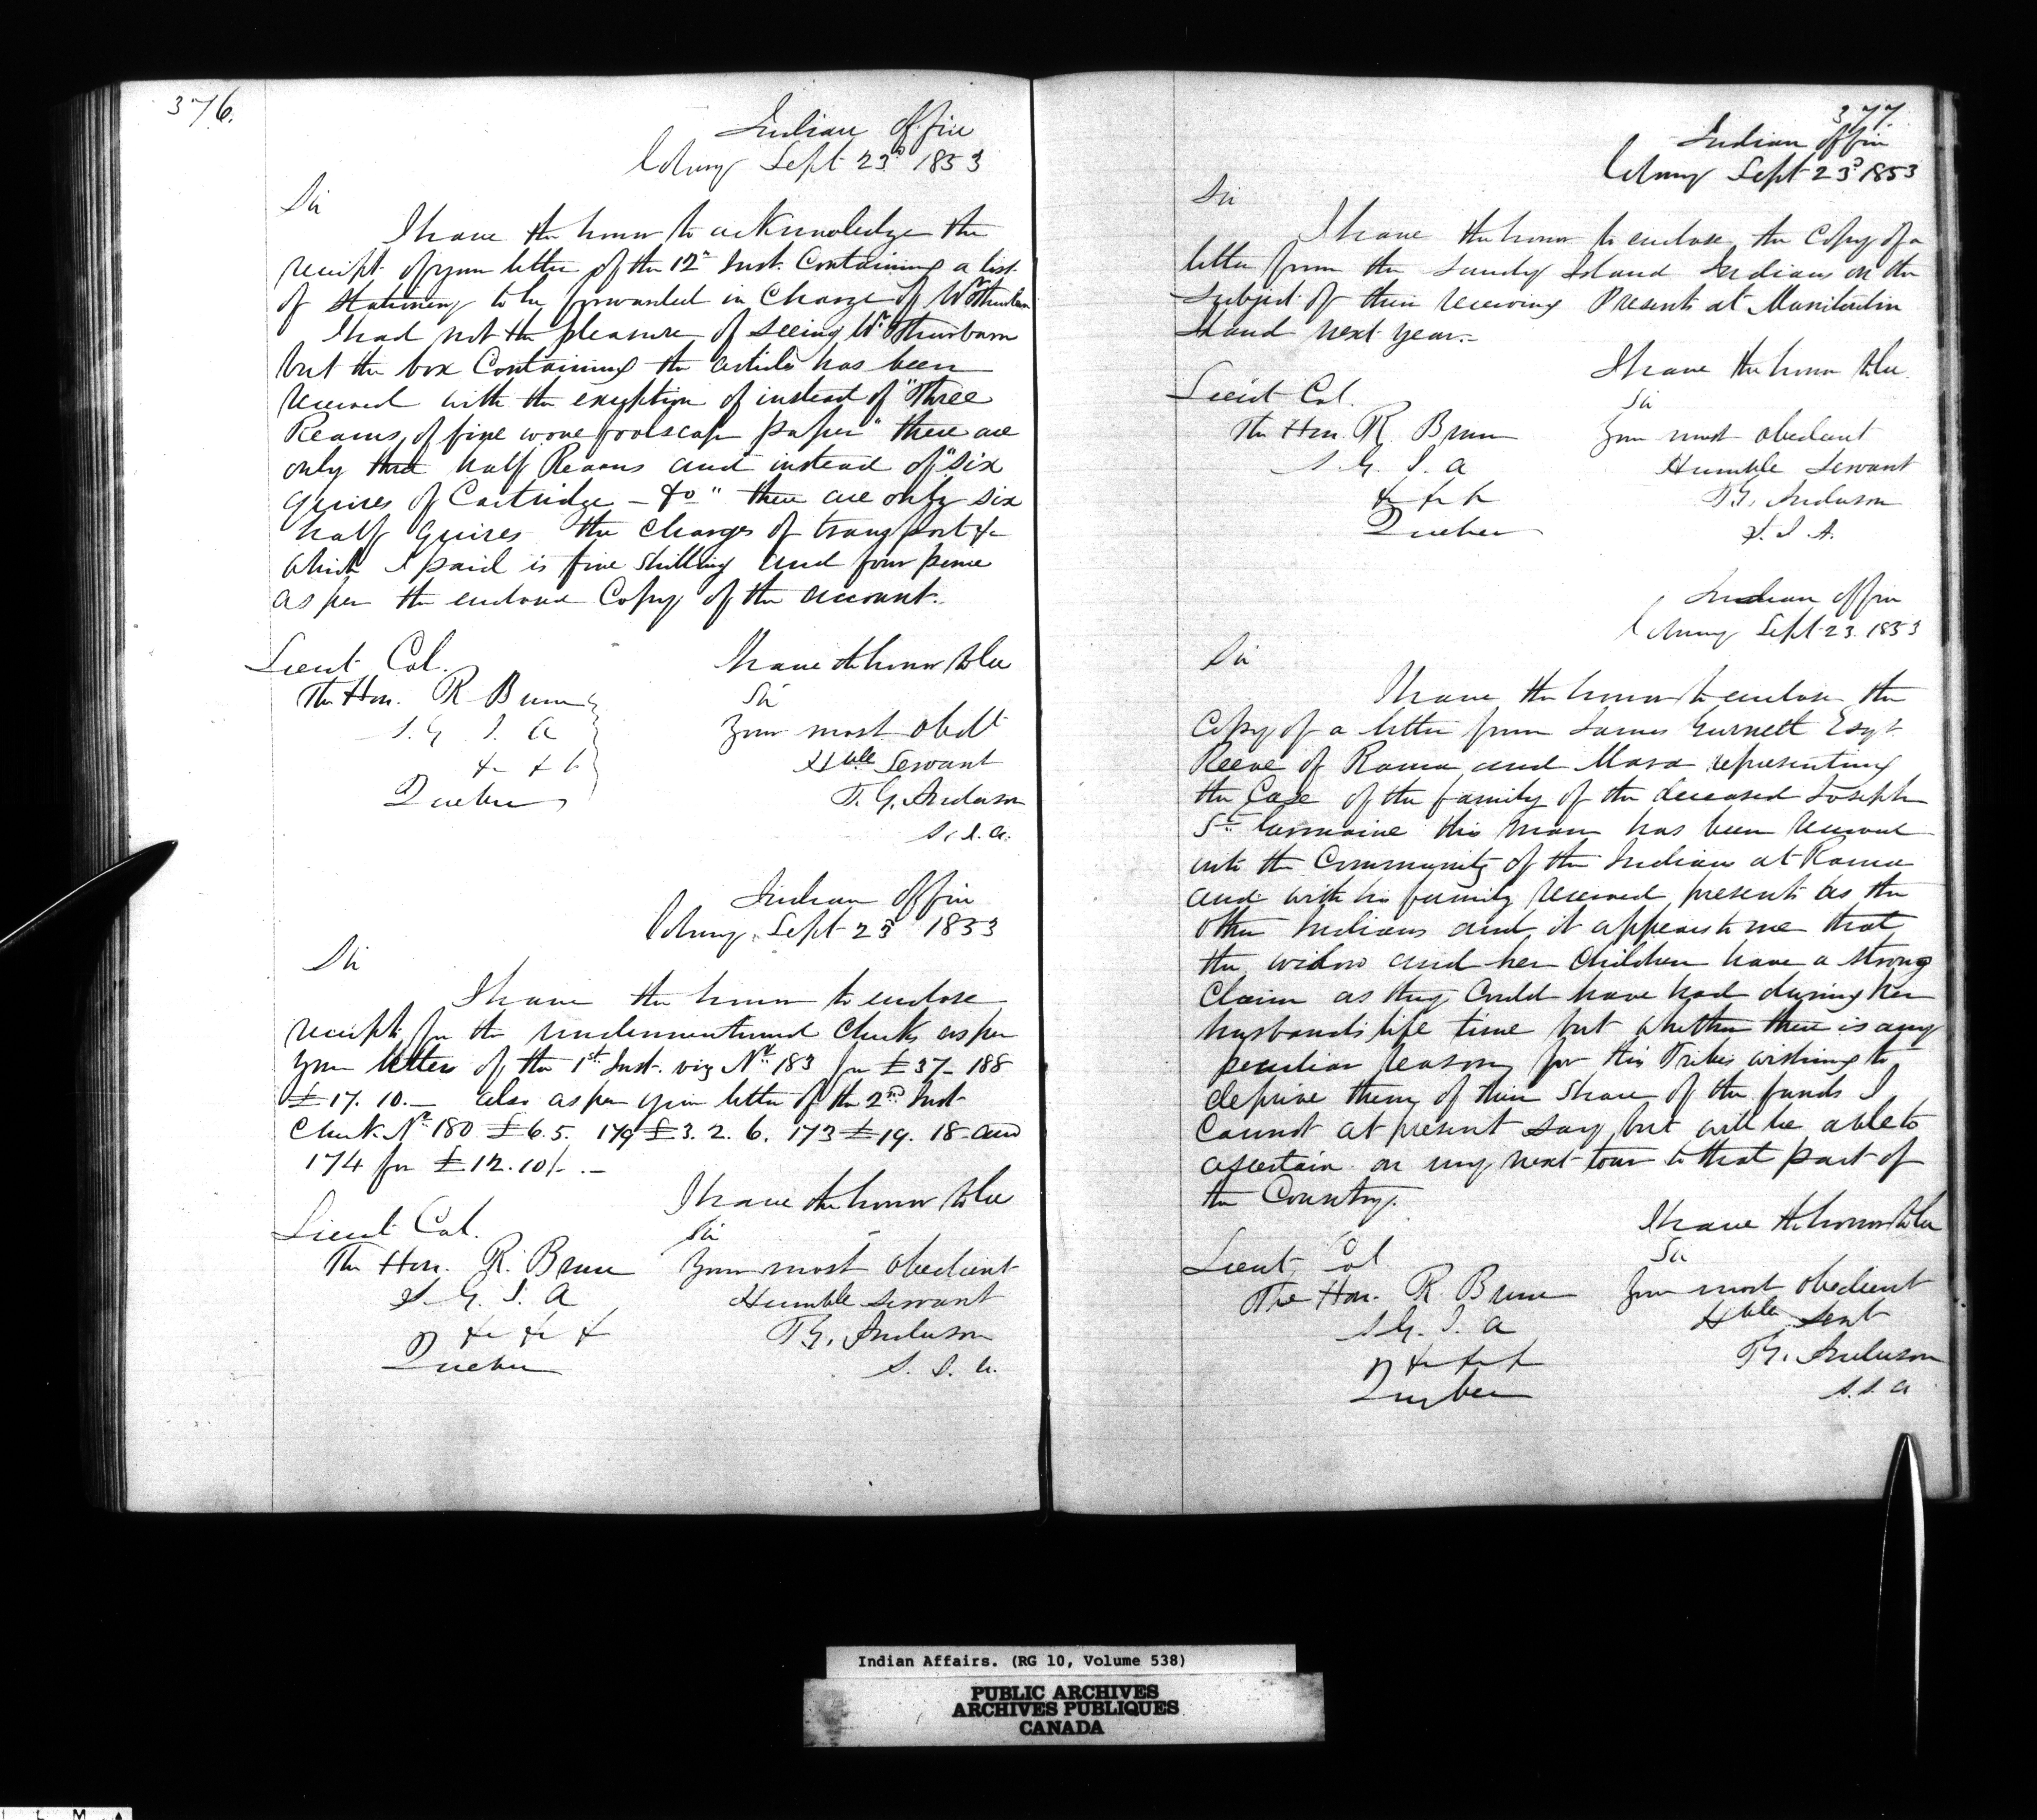 376.
Indian Office
Cobourg Sept 23d 1853
Sir
I have the honor to acknowledge the
receipt of your letter of the 12th Inst. Containing a list
of Stationery to be forwarded in Charge of Mr Thurburn
I had not the pleasure of seeing Mr Thurburn
but the box Containing the articles has been
received with the exception of instead of "Three
Reams of fine wove foolscap paper" there are
only three half Reams and instead of "Six
quires of Cartridge - do" there are only six
half quires the charges of transport &c
which I paid is five shilling and four pence
as per the enclosed Copy of the account.
I have the honor to be
Lieut Col.
Sir
The Hon. R Bruce
Your most obedt
S. G. I. A
Hble Servant
&c &c
Quebec
T. G. Anderson
S. I. A.
Indian Office
Cobourg Sept 23d 1853
Sir
I have the honor to enclose
receipts for the undermentioned Checks as per
your letter of the 1st Inst. viz No. 183 for £37- 188
£17. 10. - also as per your letter of the 2nd Inst
Check No 180 £6.5. 179 £3. 2. 6. 173 £19. 18 - and
174 for £12.10/. -
I have the honor to be
Lieut Col.
Sir
The Hon. R. Bruce
Your most obedient
S. G. I. A
Humble servant
&c &c &
T G. Anderson
Quebec
S. I. A.
377
Indian Office
Cobourg Sept 23d 1853
Sir
I have the honor to enclose the Copy of a
letter from the Sandy Island Indians on the
Subject of their receiving Presents at Manitoulin
Island next year.-
I have the honor to be
Lieut Col.
Sir
The Hon. R. Bruce
Your most obedient
S. G. I. A
Humble Servant
&c &c &c
T G. Anderson
Quebec
S. I. A.
Indian Office
Cobourg Sept 23. 1853
Sir
I have the honor to enclose the
Copy of a letter from James Gurnett Esqr
Reeve of Rama and Mara representing
the Case of the family of the deceased Joseph
St. Germaine this man has been received
into the Community of the Indians at Rama
and with his family received presents as the
other Indians and it appears to me that
the widow and her Children have a strong
Claim as they Could have had during her
husbands life time but whether there is any
peculiar reason for this Tribes wishing to
deprive them of their share of the funds I
Cannot at present say but will be able to
ascertain on my next tour to that part of
the Country.
I have the honor to be
Lieut Col
Sir
The Hon. R. Bruce
Your most obedient
S G. I. A
Hble Servt
&c &c &
T G. Anderson
Quebec
S. I. A
Indian Affairs. (RG 10, Volume 538)
PUBLIC ARCHIVES
ARCHIVES PUBLIQUES
CANADA